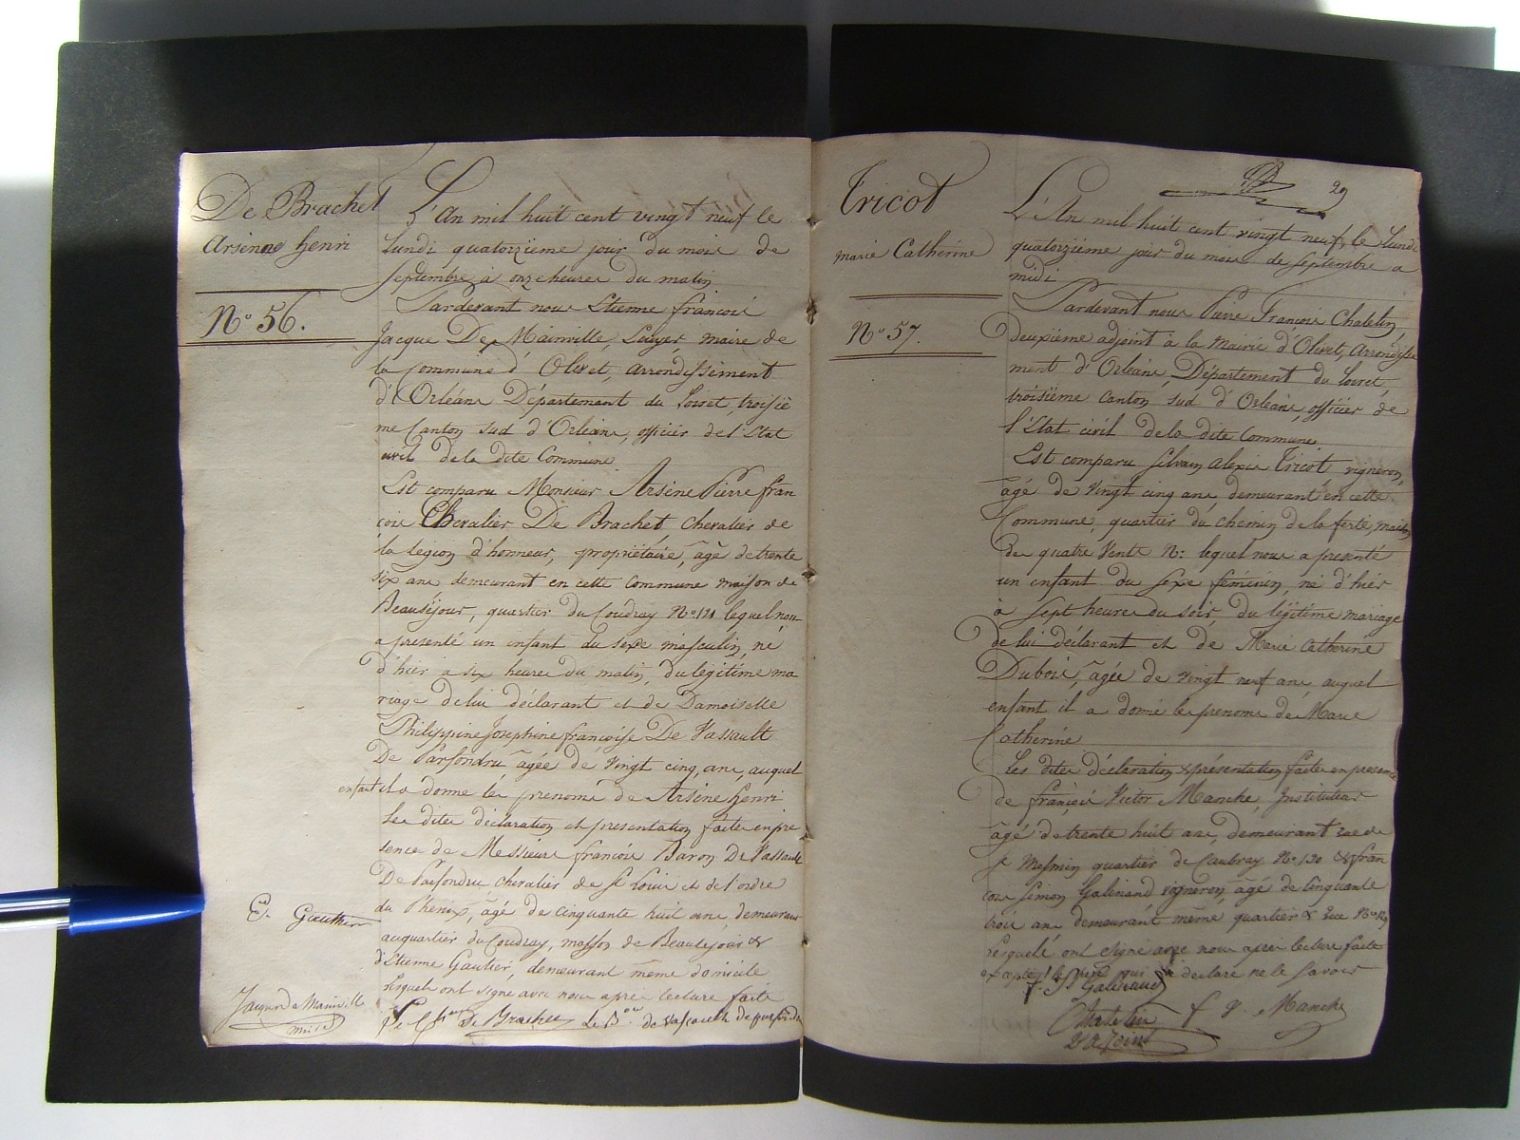 De Brachet
Arsène henri
N° 56.
L'An mil huit cent vingt neuf le
Lundi quatorzième jour du mois de
Septembre à onze heures du matin
Pardevant nous Etienne françois
Jacque De Mainville, Ecuyer maire de
la Commune d'Olivet, arrondissement
d'Orléans Département du Loiret, troisiè
me Canton Sud d'Orléans, officier de l'Etat
civil de la dite Commune
Est comparu Monsieur Arsène Pierre fran
çois Chevalier De Brachet chevalier de
la Légion d'honneur, propriétaire, âgé de trente
six ans demeurant en cette commune maison de
Beauséjour, quartier du Coudray N° 121 lequel nous
a presenté un enfant du sexe masculin, né
d'hier à six heures du matin, du légitime ma
riage de lui déclarant et de Damoiselle
Philippine Josephine françoise De Vassault
De Parfondru âgée de vingt cinq ans, auquel
enfant il a donné les prenoms de Arsène henri
Les dites déclaration et presentation faites en pre
sence de Messieurs françois Baron De Vassault
De Parfondru chevalier de St Louis et de l'ordre
du Phénix, âgé de cinquante huit ans demeurant
au quartier du Coudray, maison de Beauséjour &
d'Etienne Gautier, demeurant même domicile
lesquels ont signé avec nous après lecture faite
E. Gautier
Jacque de Mainville
maire
le Ch^er de Brachet le B^on de Vassault de parfondru
29
Tricot
marie Catherine
N° 57.
L'An mil huit cent vingt neuf, le Lundi
quatorzième jour du mois de Septembre a
midi
Pardevant nous Pierre François Chatelin,
deuxième adjoint à la Mairie d'Olivet, arrondisse
ment d'Orléans, Département du Loiret,
troisième canton sud d'Orléans, officier de
l'Etat civil de la dite Commune
Est comparu Silvain Alexis Tricot vigneron,
âgé de vingt cinq ans demeurant en cette
Commune, quartier du chemin de la ferté, maison
des quatre Vents N: lequel nous a presenté
un enfant du sexe féminin, né d'hier
à sept heures du soir, du légitime mariage
de lui déclarant et de Marie Catherine
Dubois, âgée de vingt neuf ans auquel
enfant il a donné les prenoms de Marie
Catherine
Les dites déclaration & présentation faites en presence
de françois Victor Manche, Instituteur
âgé de trente huit ans, demeurant rue de
St Mesmin quartier de Caubray N° 130 & fran
çois Simon Galinand vigneron, âgé de cinquante
trois ans demeurant même quartier & rue N°
lesquels ont signé avec nous après lecture faite
excepté le père qui a declaré ne le savoir
Galinand
Chatelin f V. Manche
2e adjoint